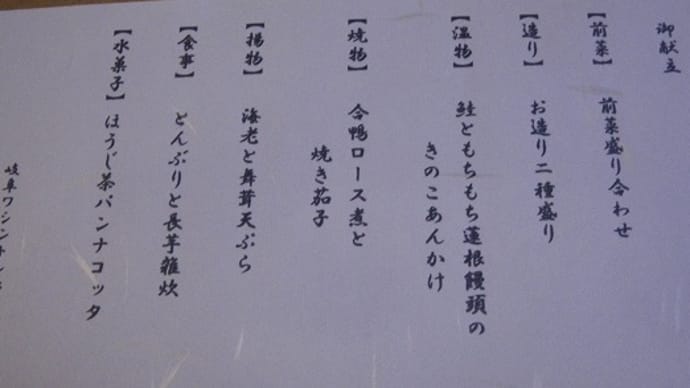 御献立
【前菜】 前菜盛り合わせ
【造り】 お造り二種盛り
【温物】 鮭ともちもち蓮根饅頭の
きのこあんかけ
【焼物】 合鴨ロース煮と
焼き茄子
【揚物】 海老と舞茸天ぷら
【食事】 とんぶりと長芋雑炊
【水菓子】 ほうじ茶パンナコッタ
岐阜ワシントン